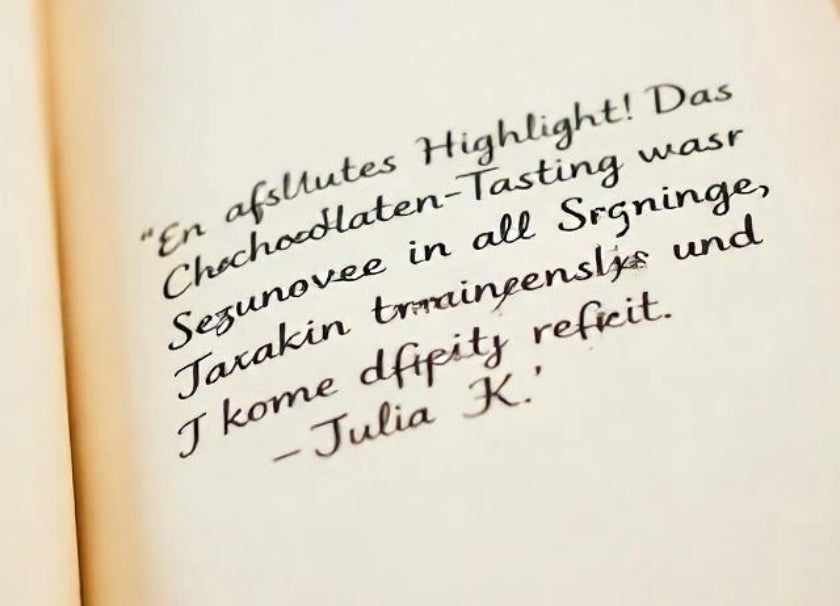 "En afsllutes Highlight! Das
Chochoodlaten-Tasting wasr
Sezunovee in all Srgninge,
Jaxakin und
J kome dfipity reficit.
– Julia K.'